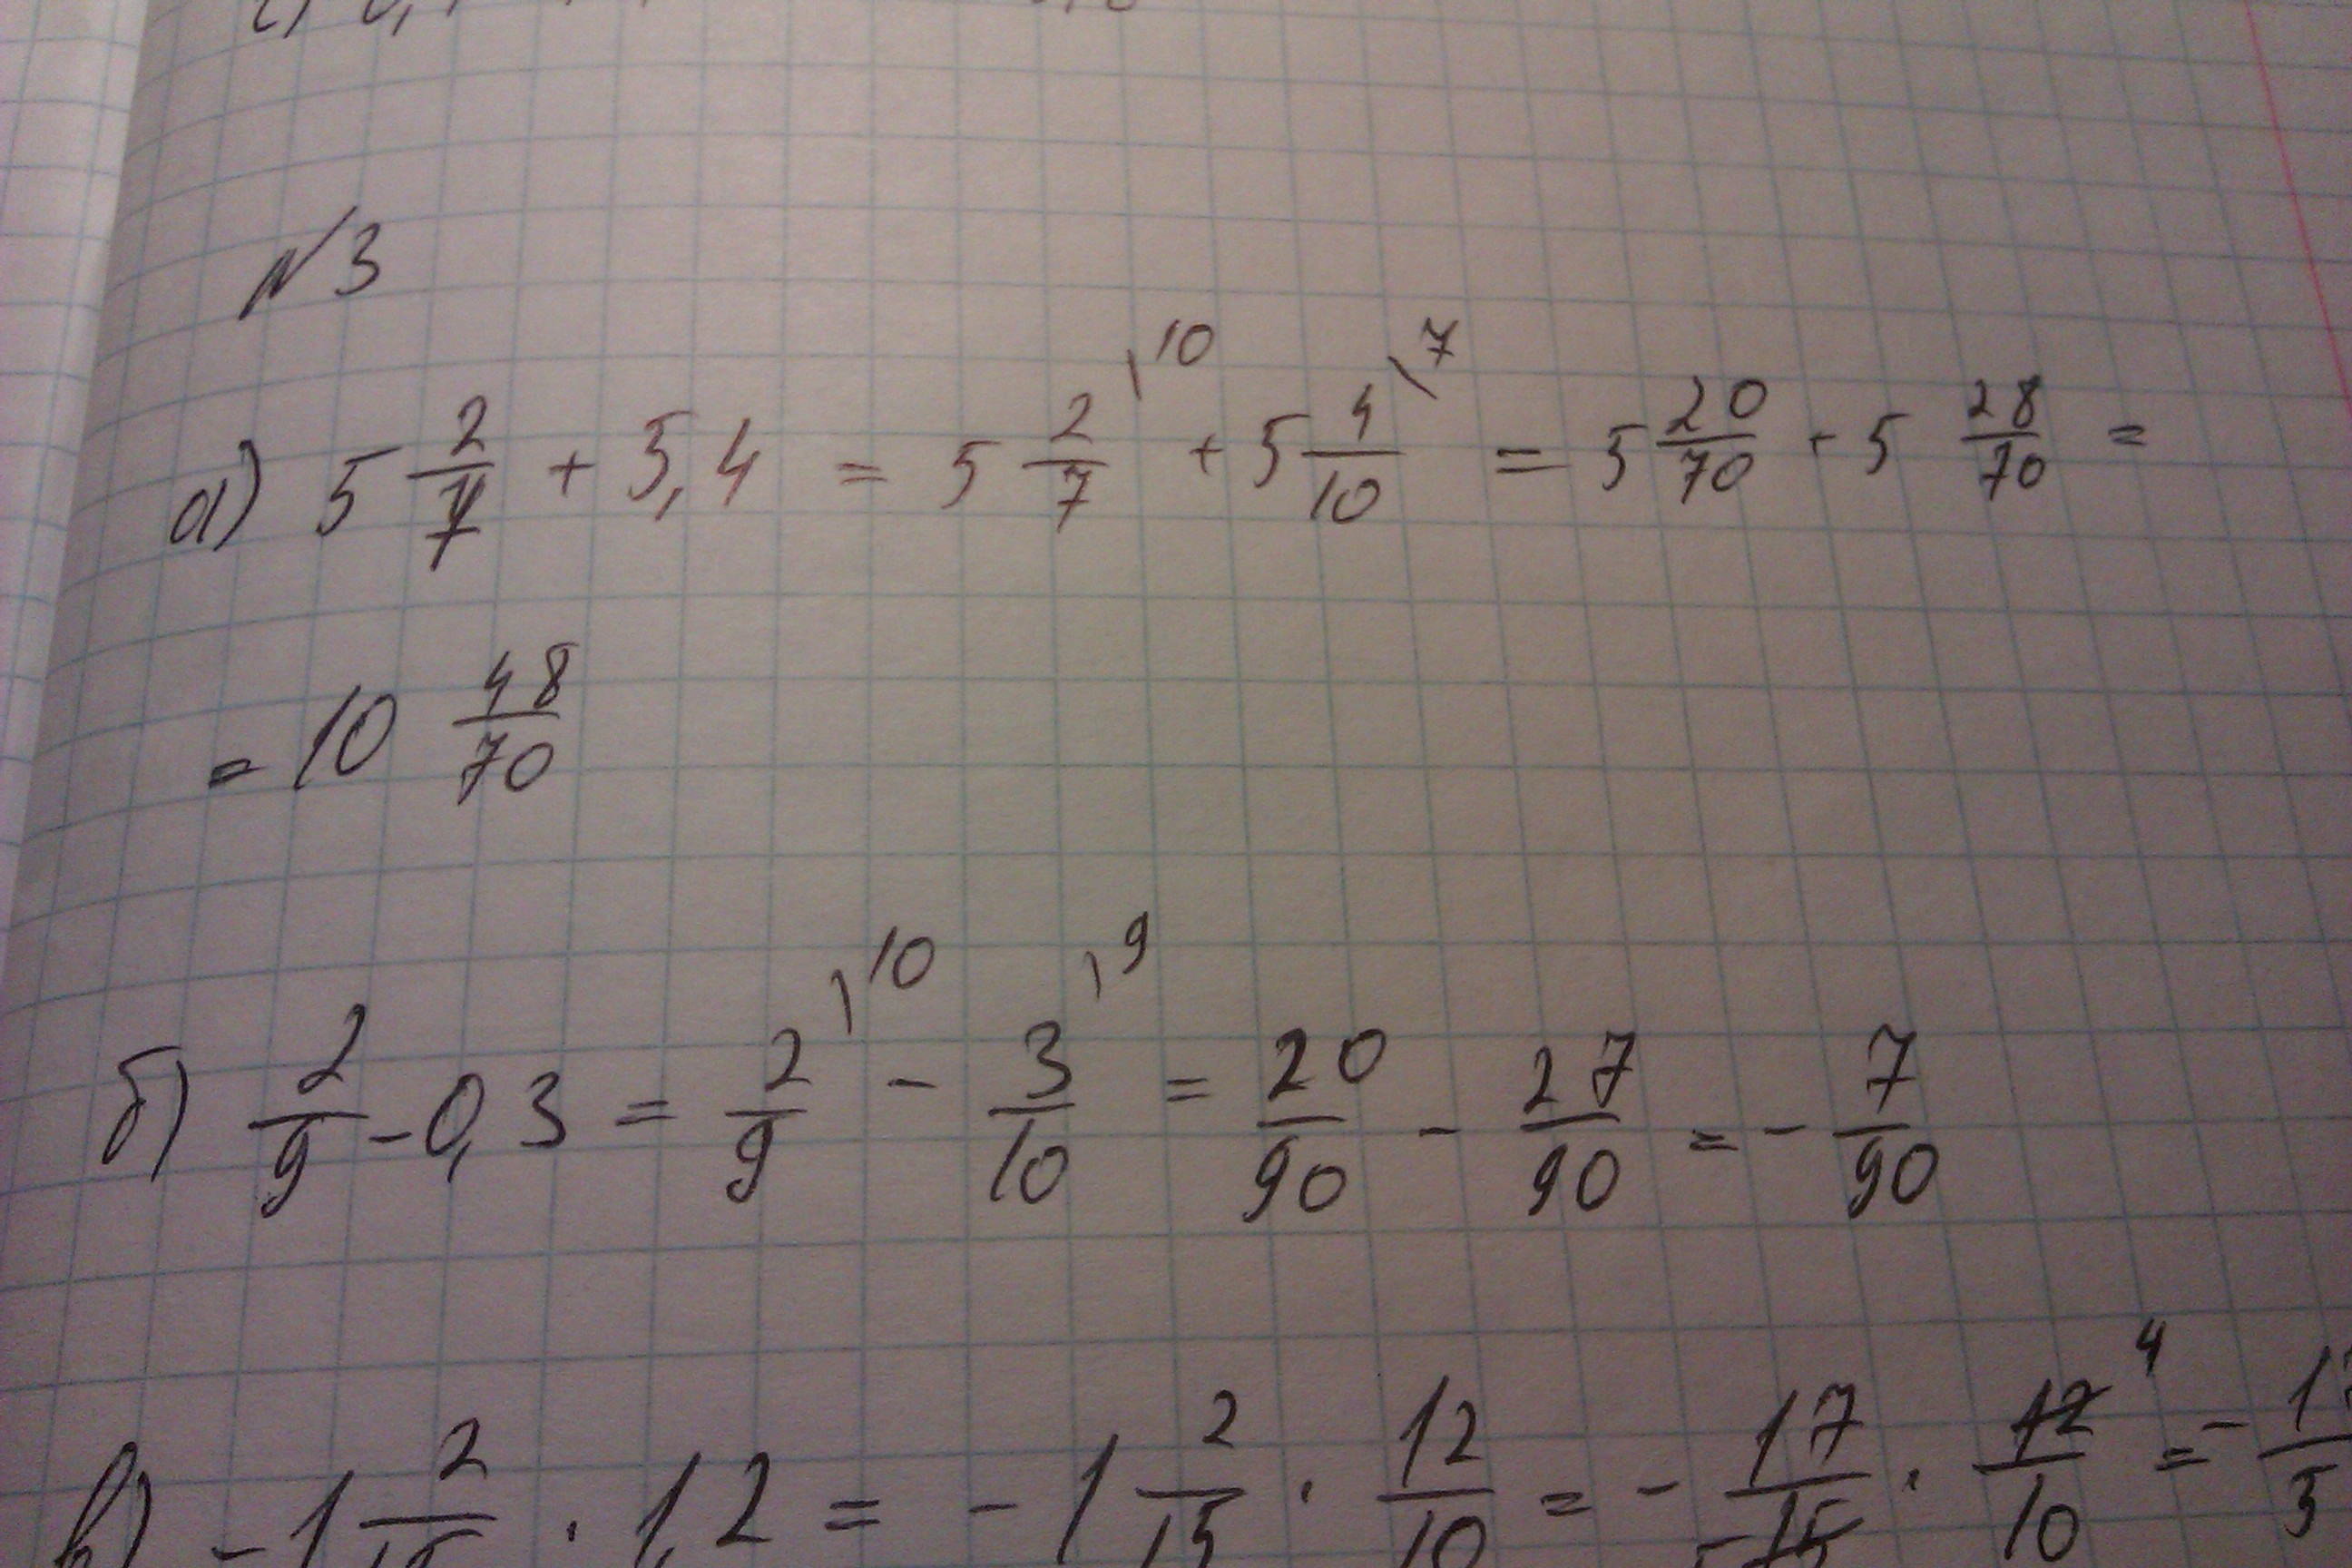 №3
а) 5 2/7 + 5,4 = 5 2/7 \10 + 5 4/10 \7 = 5 20/70 + 5 28/70 =
= 10 48/70
б) 2/9 - 0,3 = 2/9 \10 - 3/10 \9 = 20/90 - 27/90 = - 7/90
в) - 1 2/15 · 1,2 = - 1 2/15 · 12/10 = - 17/15 5 · 12/10 4 = -